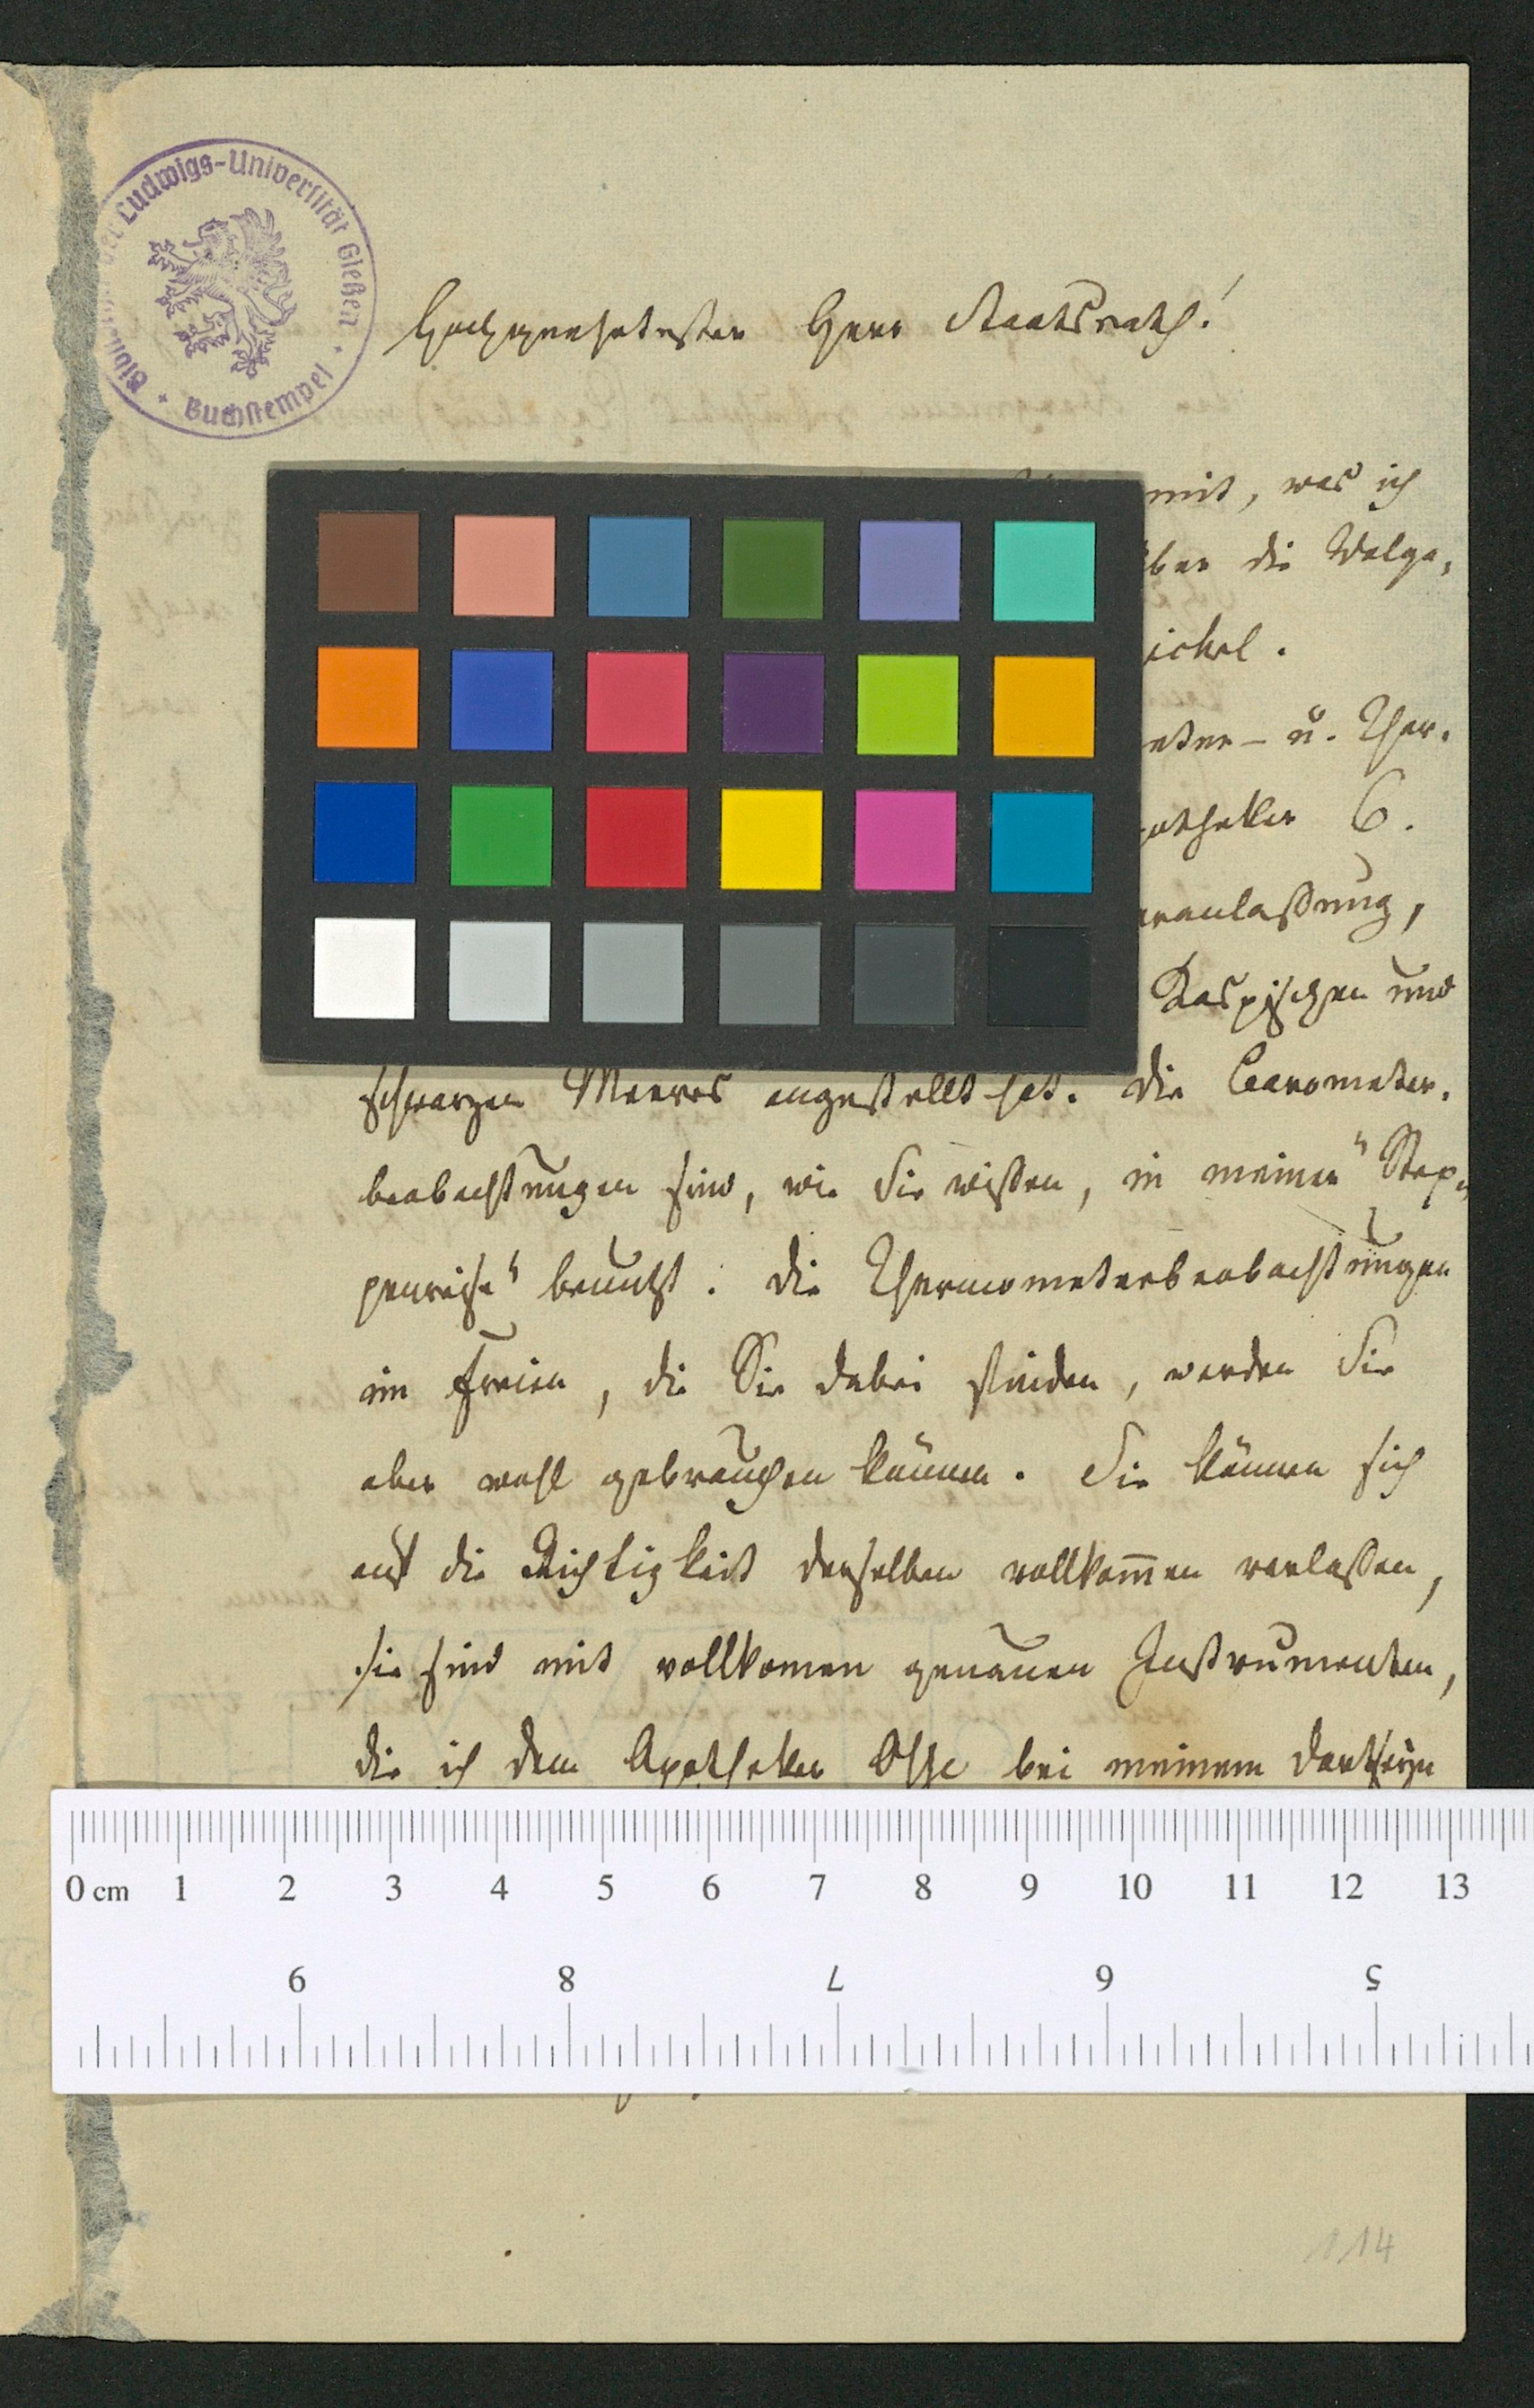 Bibliothek der Ludwigs-Universität Gießen
Buchstempel
Hochgeehrtester Herr Staatsrath!
mit, was ich
über die Wolga,
ickel.
eter- u. Ther-
potheker C.
eranlaßung,
Kaspischen und
schwarzen Meeres angestellt hat. Die Barometer-
beobachtungen sind, wie Sie wißen, in meiner "Step-
penreise" benutzt. Die Thermometerbeobachtungen
im Freien, die Sie dabei finden, werden Sie
aber wohl gebrauchen können. Sie können sich
auf die Richtigkeit derselben vollkom̅en verlaßen,
sie sind mit vollkomen genauen Instrumenten,
die ich dem Apotheker Osse bei meinem Dortseyn
0 cm 1 2 3 4 5 6 7 8 9 10 11 12 13
9 8 7 6 5
114